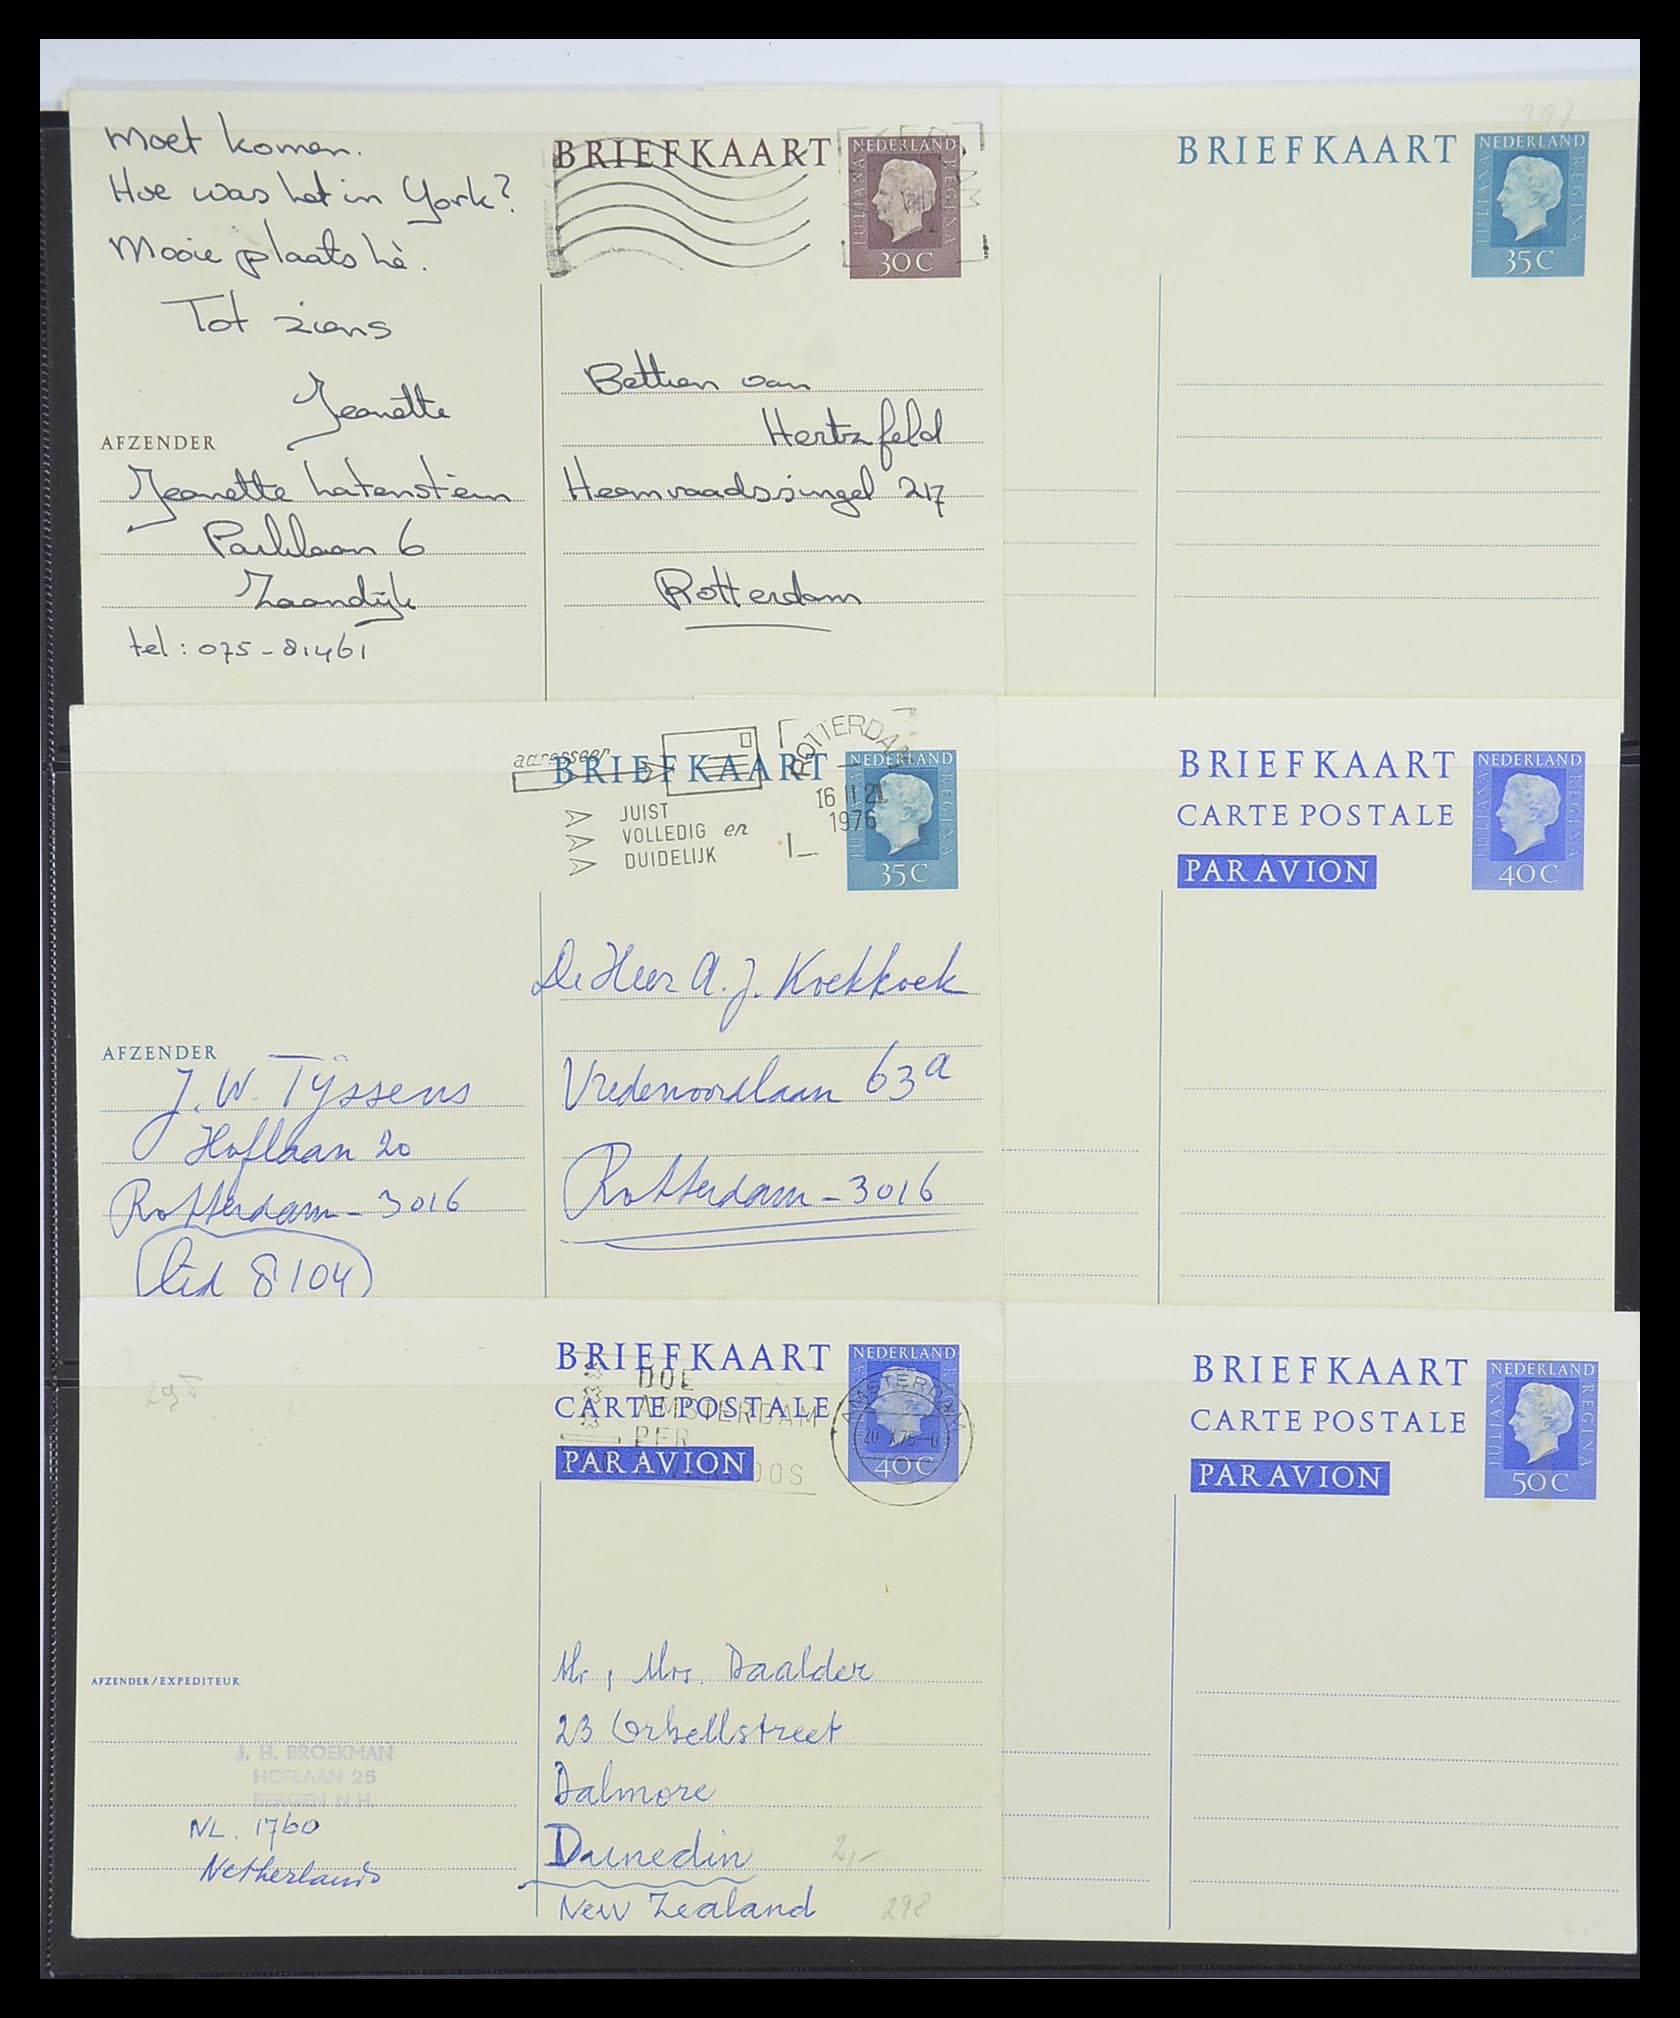 Moet komen.
Hoe was het in York?
Mooie plaats hè.
Tot ziens
Jeanette
AFZENDER
Jeanette Latenstein
Parklaan 6
Zaandijk
tel: 075-81461
BRIEFKAART
NEDERLAND
JULIANA REGINA
30 C
Bettien van
Hertzfeld
Heemraadssingel 217
Rotterdam
297
BRIEFKAART
NEDERLAND
JULIANA REGINA
35 C
adresseer
BRIEFKAART
JUIST
VOLLEDIG en
DUIDELIJK
AAA
ROTTERDAM
16 II 21
1976
NEDERLAND
JULIANA REGINA
35 C
De Heer A. J. Koekkoek
Vredenoordlaan 63a
Rotterdam-3016
AFZENDER
J. W. Tijssens
Hoflaan 20
Rotterdam-3016
Lid 8104
BRIEFKAART
CARTE POSTALE
PAR AVION
NEDERLAND
JULIANA REGINA
40 C
BRIEFKAART
CARTE POSTALE
PAR AVION
DOE
AMSTERDAM
PER
NEDERLAND
40 C
AMSTERDAM
AFZENDER/EXPEDITEUR
J. H. BROEKMAN
HOFLAAN 25
BERGEN N.H.
NL. 1760
Netherlands
Mr, Mrs. Daalder
23 Orbellstreet
Dalmore
Dunedin
New Zealand
2,-
298
BRIEFKAART
CARTE POSTALE
PAR AVION
NEDERLAND
JULIANA REGINA
50 C